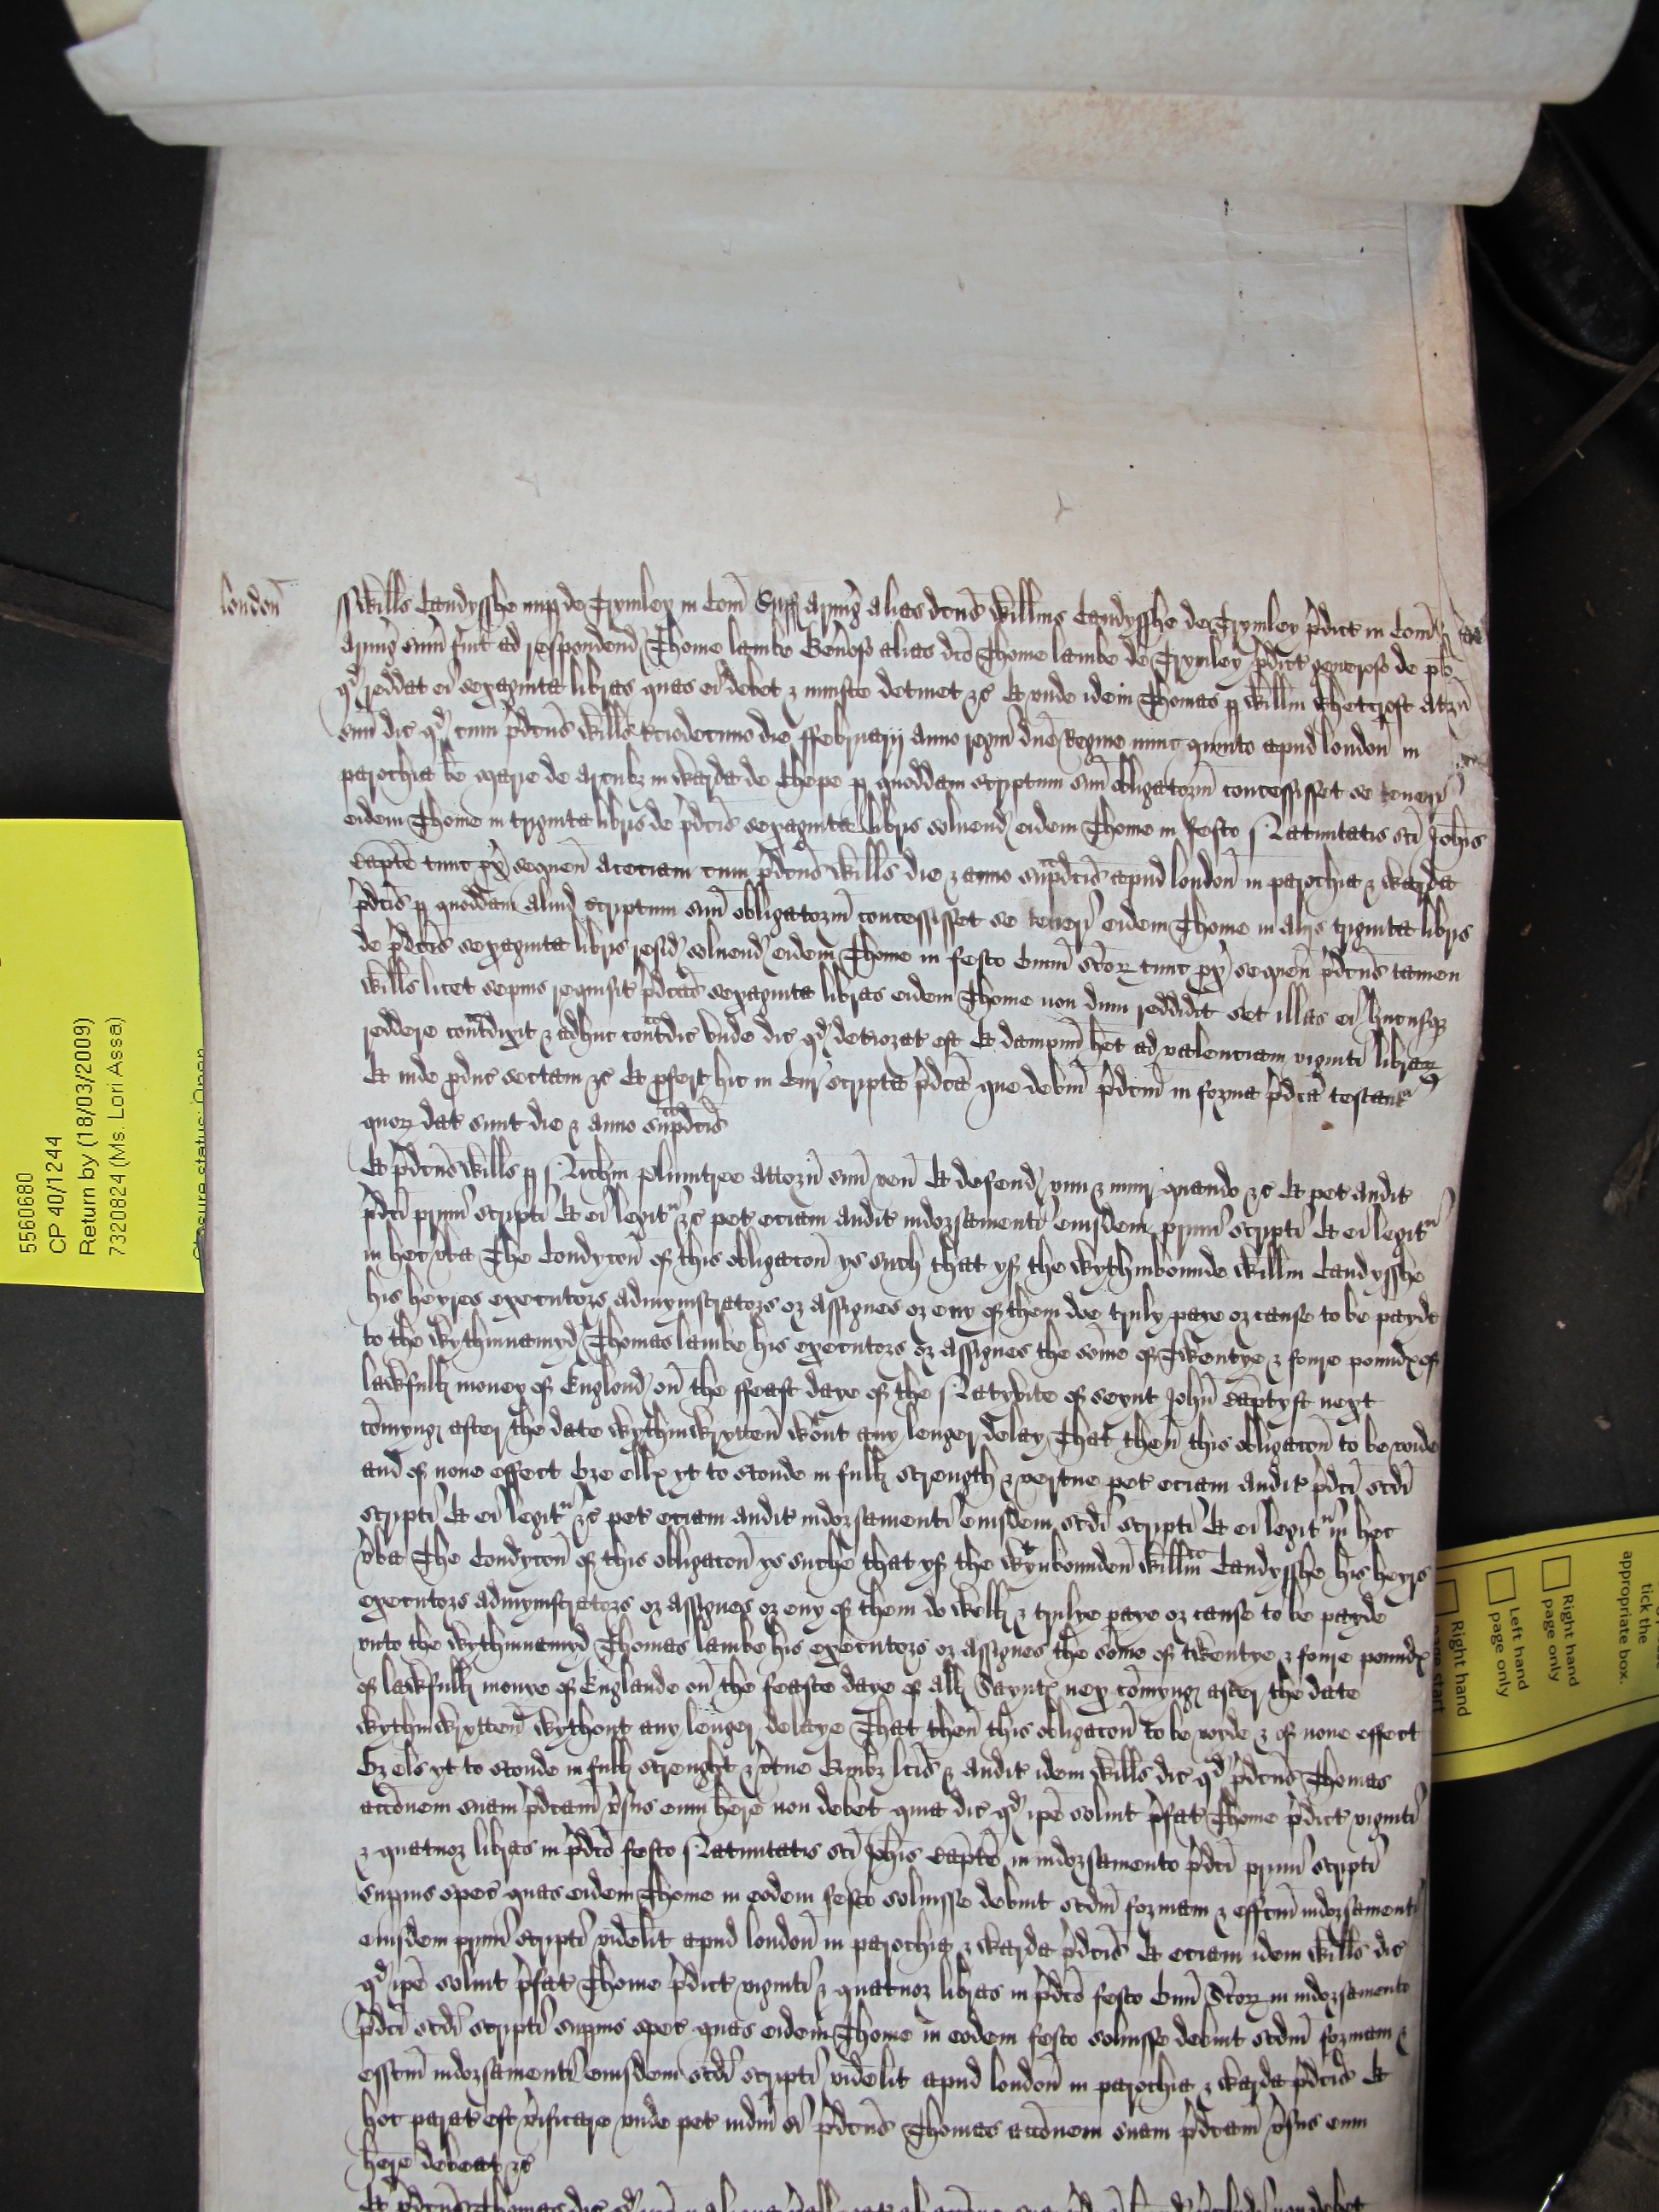 london̄
ss Will̄s Candysshe nup de Trymley in Com̄ Suff Armiḡ alias dc̄us Will̄ms Candysshe de Trymley p̄dict in Com̄
Armiḡ sum̄ fuit ad respondend Thome lambe Gen̄oso alias dc̄o Thome lambe de Trymley p̄dict generoso de pl̄
qd reddat ei sexaginta libras quas ei debet & iniuste detinet &c Et vnde idem Thomas p Will̄m Chetcroft Attorn̄
suū dic qd cum p̄dc̄us Will̄s die ffebruarij anno regni dn̄e Regine nunc quinto apud london̄ in
parochia bē marie de arcubȝ in Warda de Chepe p quoddam scriptum suū obligatoriū concessisset se teneri
eidem Thome in triginta libris de p̄dc̄is sexaginta libris soluend eidem Thome in festo Natiuitatis sc̄i Joh̄is
Baptē tunc px̄ sequen̄ Acetiam cum p̄dc̄us Will̄s die & anno sup̄dc̄is apud london̄ in parochia & Warda
p̄dc̄is p quoddam aliud scriptum suū obligatoriū concessisset se teneri eidem Thome in alijs triginta libris
de p̄dc̄is sexaginta libris resid soluend eidem Thome in festo Omn̄i Sc̄oꝝ tunc px̄ sequen̄ p̄dc̄us tamen
Will̄s licet sepius requisit p̄dc̄as sexaginta libras eidem Thome non dum reddidit set illas ei hucusqȝ
reddere cont̄dixit & adhuc cont̄dic Vnde dic qd deteriorat est Et dampnū het ad valenciam viginti libraꝝ
Et inde p̄duc sectam &c Et p̄fert hic in Cur scripta p̄dc̄a que debitū p̄dc̄m in forma p̄dc̄a testantr
quoꝝ dat sunt die & anno sup̄dc̄is
Et p̄dc̄us Will̄s p Nich̄m Plumtree attorn̄ suū ven̄ Et defend vim & iniur quando &c Et pet audit
p̄dc̄i primi scripti Et ei legitr &c pet eciam audit indorsamenti eiusdem primi scripti Et ei legitr
in hec vba The Condycōn of this obligacōn ys such that yf the Wythinbounde Will̄m Candysshe
his heyres executors admynistrators or assignes or eny of them doe truly paye or cause to be payde
to the Wythinnamyd Thomas lambe his executors or assignes the som̄e of Twentye & foure poundꝭ of
lawfull money of Englond on̄ the ffeast daye of the Natyvite of seynt John̄ Baptyst next
com̄yng after the date Wythinwrytten̄ wtout any lenger delay That then̄ this obligacōn to be voide
and of none effect Ore ellꝭ yt to stonde in full strength & vertue pet eciam audit p̄dc̄i scd̄i
scripti Et ei legitr &c pet eciam audit indorsamenti eiusdem scd̄i scripti Et ei legitr in hec
vba The Condycōn of this obligacōn ys suche that yf the wtynbounden̄ Will̄m Candysshe his heyrs
executors admynistrators or assignes or eny of them do well & trulye paye or cause to be payde
vnto the Wythinnamyd Thomas lambe his executors or assignes the some of twentye & foure poundꝭ
of lawfull monye of Englande on̄ the feaste daye of all Sayntꝭ nex com̄yng after the date
Wythinwrytten̄ wythout any lenger delaye That then̄ this obligacōn to be voyde & of none effect
Or els yt to stonde in full strenght & v̄tue Quibȝ lc̄is & audit idem Will̄s dic qd p̄dc̄us Thomas
acc̄onem suam p̄dc̄am v̄sus eum hēre non debet quia dic qd ip̄e soluit p̄fat Thome p̄dict viginti
& quatuor libras in p̄dc̄o festo Natiuitatis sc̄i Joh̄is Baptē in indorsamento p̄dc̄i primi scripti
supius spec̄ quas eidem Thome in eodem festo soluisse debuit scd̄m formam & effc̄m indorsamenti
eiusdem primi scripti videl̄it apud london̄ in parochia & Warda p̄dc̄is Et eciam idem Will̄s dic
qd ip̄e soluit p̄fat Thome p̄dict viginti & quatuor libras in p̄dc̄o festo Omn̄i Sc̄oꝝ in indorsamento
p̄dc̄i scd̄i scripti supius spec̄ quas eidem Thome in eodem festo soluisse debuit scd̄m formam &
effc̄m indorsamenti eiusdem scd̄i scripti videl̄it apud london̄ in parochia & Warda p̄dc̄is Et
hoc parat est v̄ificare vnde pet iudm̄ si p̄dc̄us Thomas acc̄onem suam p̄dc̄am v̄sus eum
hēre debeat &c
Et p̄dc̄us Thomas dic qd
5560680
CP 40/1244
Return by (18/03/2009)
7320824 (Ms. Lori Assa)
Closure status: Open
tick the
appropriate box.
Right hand
page only
Left hand
page only
Right hand
page start